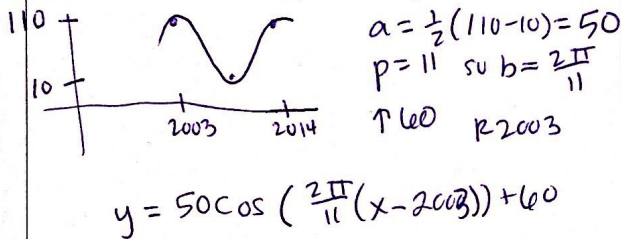 110
10
2003 2014
a = 1/2 (110-10) = 50
p = 11 so b = 2π/11
↑ 60 R2003
y = 50cos ( 2π/11 (x-2003)) + 60